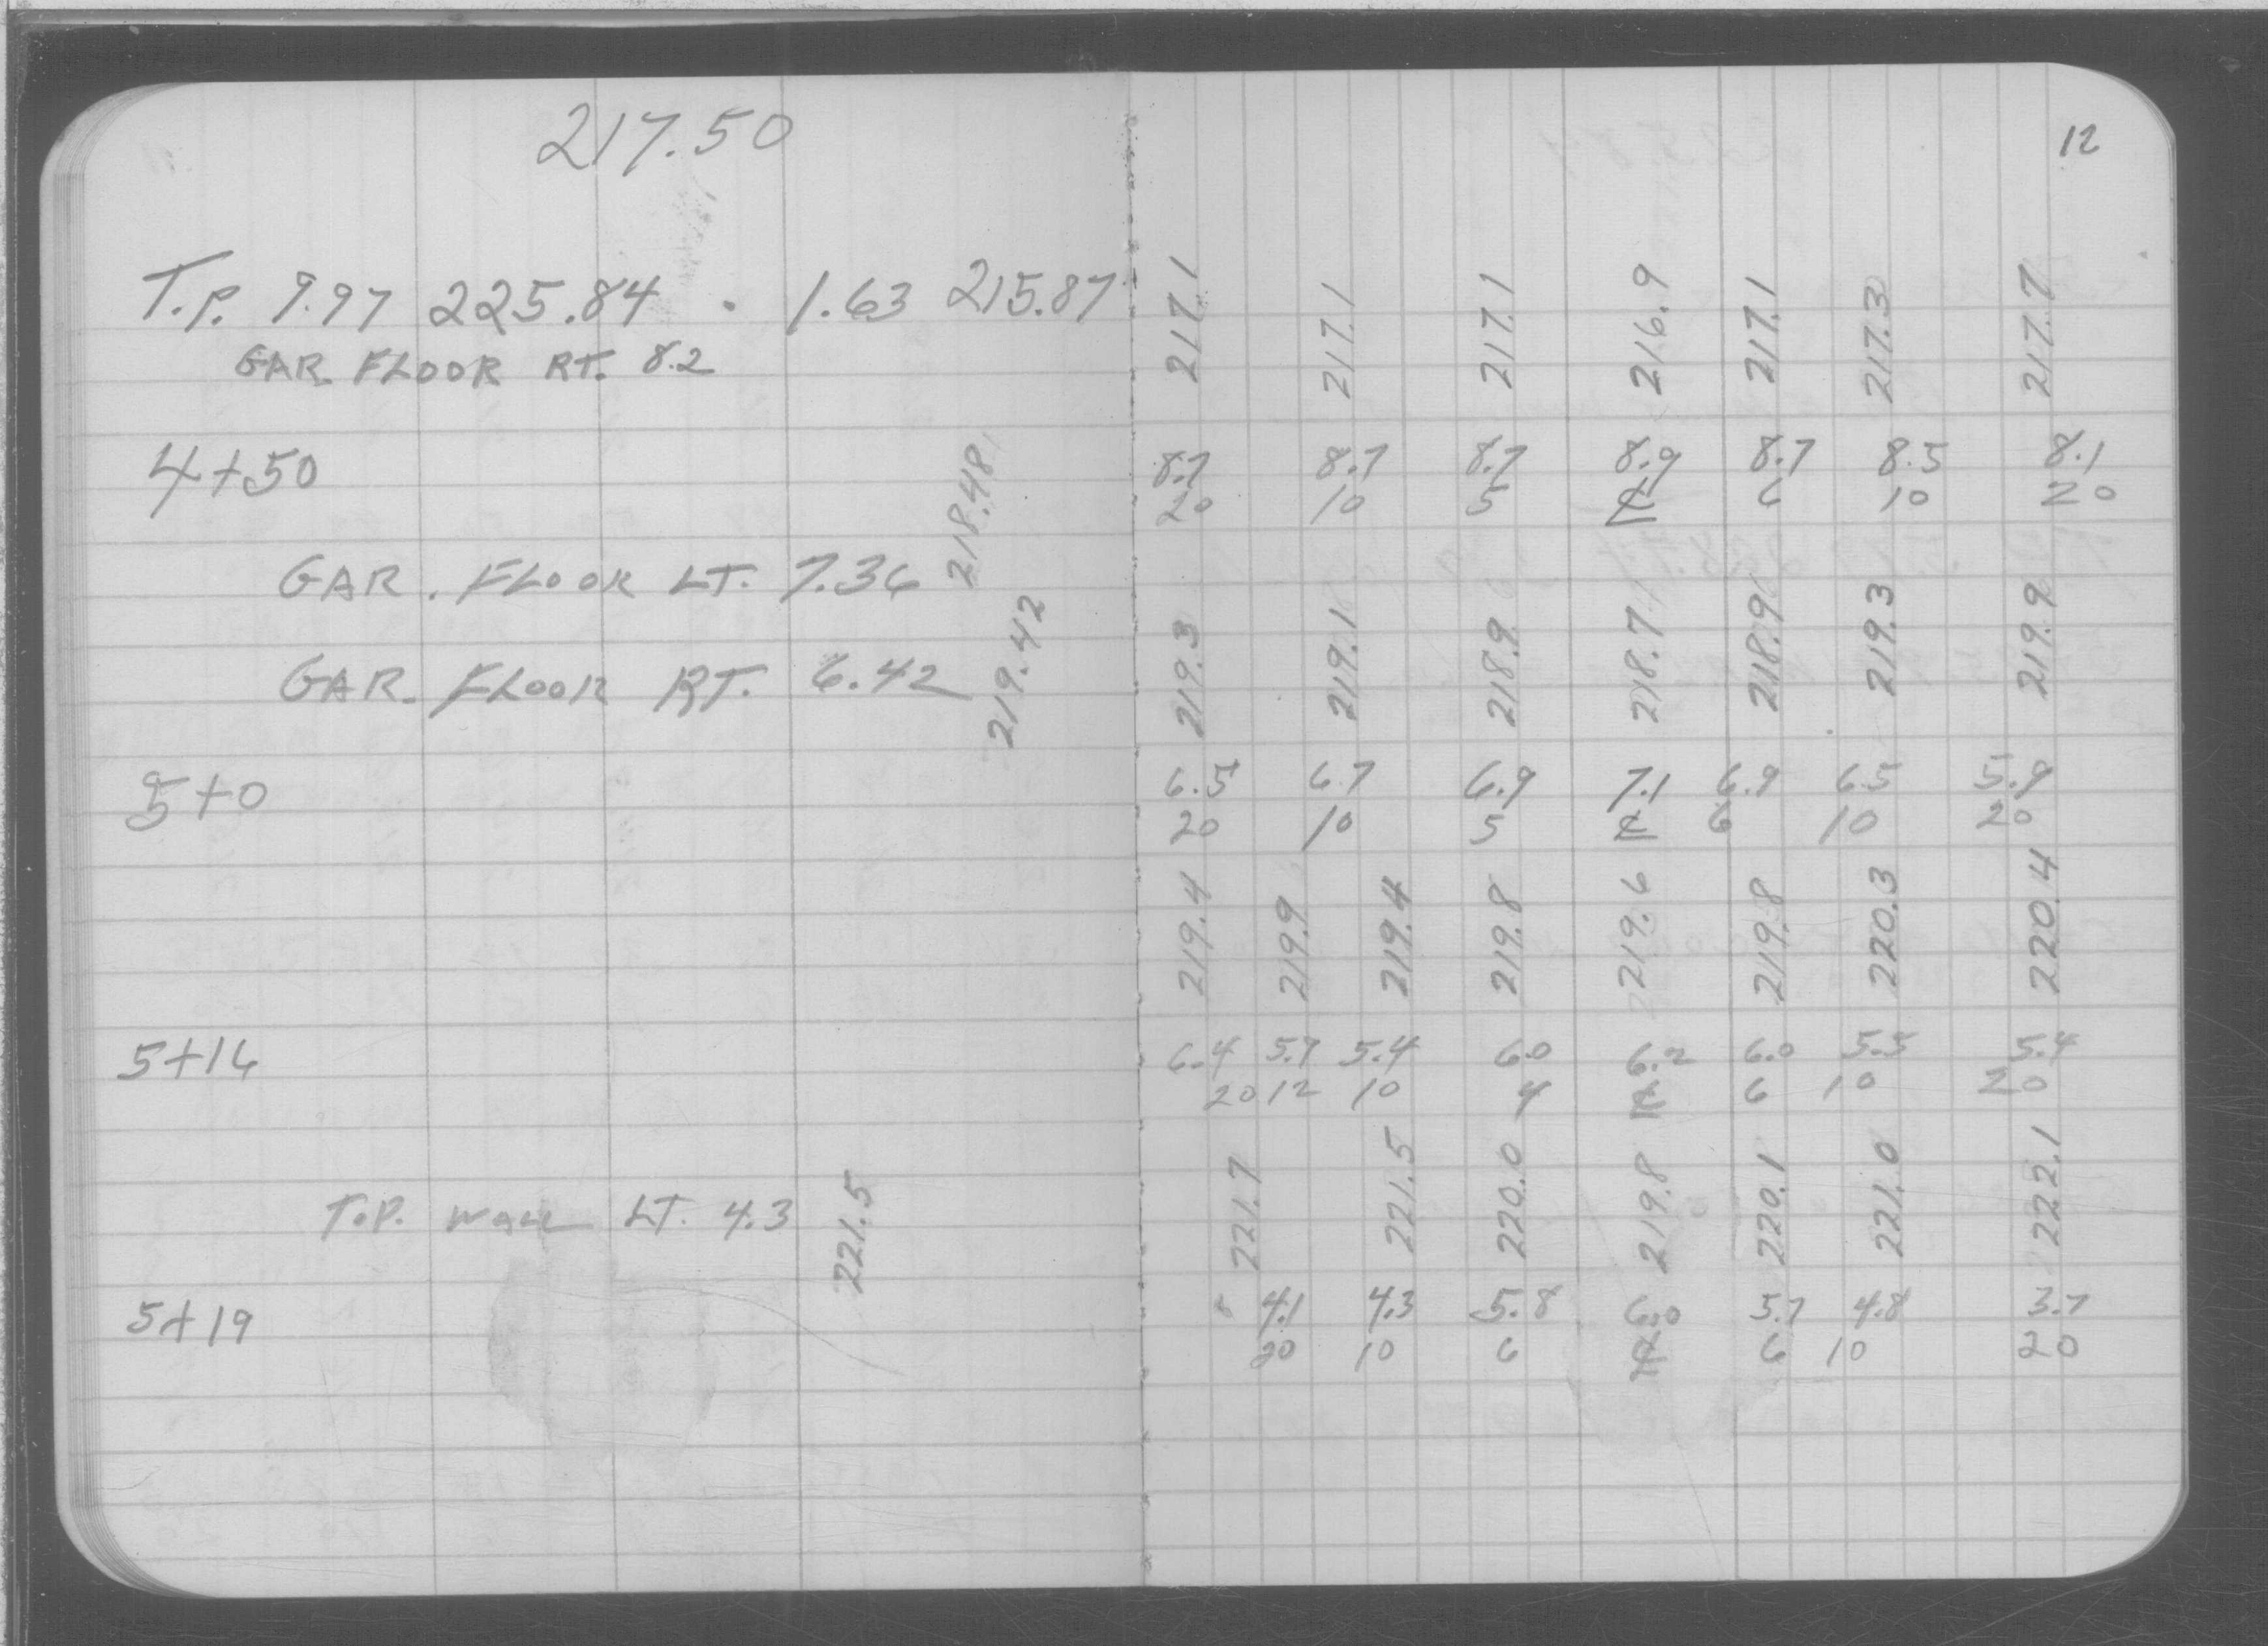 217.50
12
T.P. 9.97 225.84 . 1.63 215.87
217.1 217.1 217.1 216.9 217.1 217.3 217.7
GAR. FLOOR RT. 8.2
4+50
8.7 8.7 8.7 8.9 8.7 8.5 8.1
20 10 5 ℄ 6 10 20
GAR. FLOOR LT. 7.36 218.48
GAR. FLOOR RT. 6.42 219.42
219.3 219.1 218.9 218.7 218.9 219.3 219.9
5+0
6.5 6.7 6.9 7.1 6.9 6.5 5.9
20 10 5 ℄ 6 10 20
219.4 219.9 219.4 219.8 219.6 219.8 220.3 220.4
5+16
6.4 5.9 5.4 6.0 6.2 6.0 5.5 5.4
20 12 10 4 ℄ 6 10 20
T.P. WALL LT. 4.3 221.5
221.7 221.5 220.0 219.8 220.1 221.0 222.1
5+19
4.1 4.3 5.8 6.0 5.7 4.8 3.7
20 10 6 ℄ 6 10 20